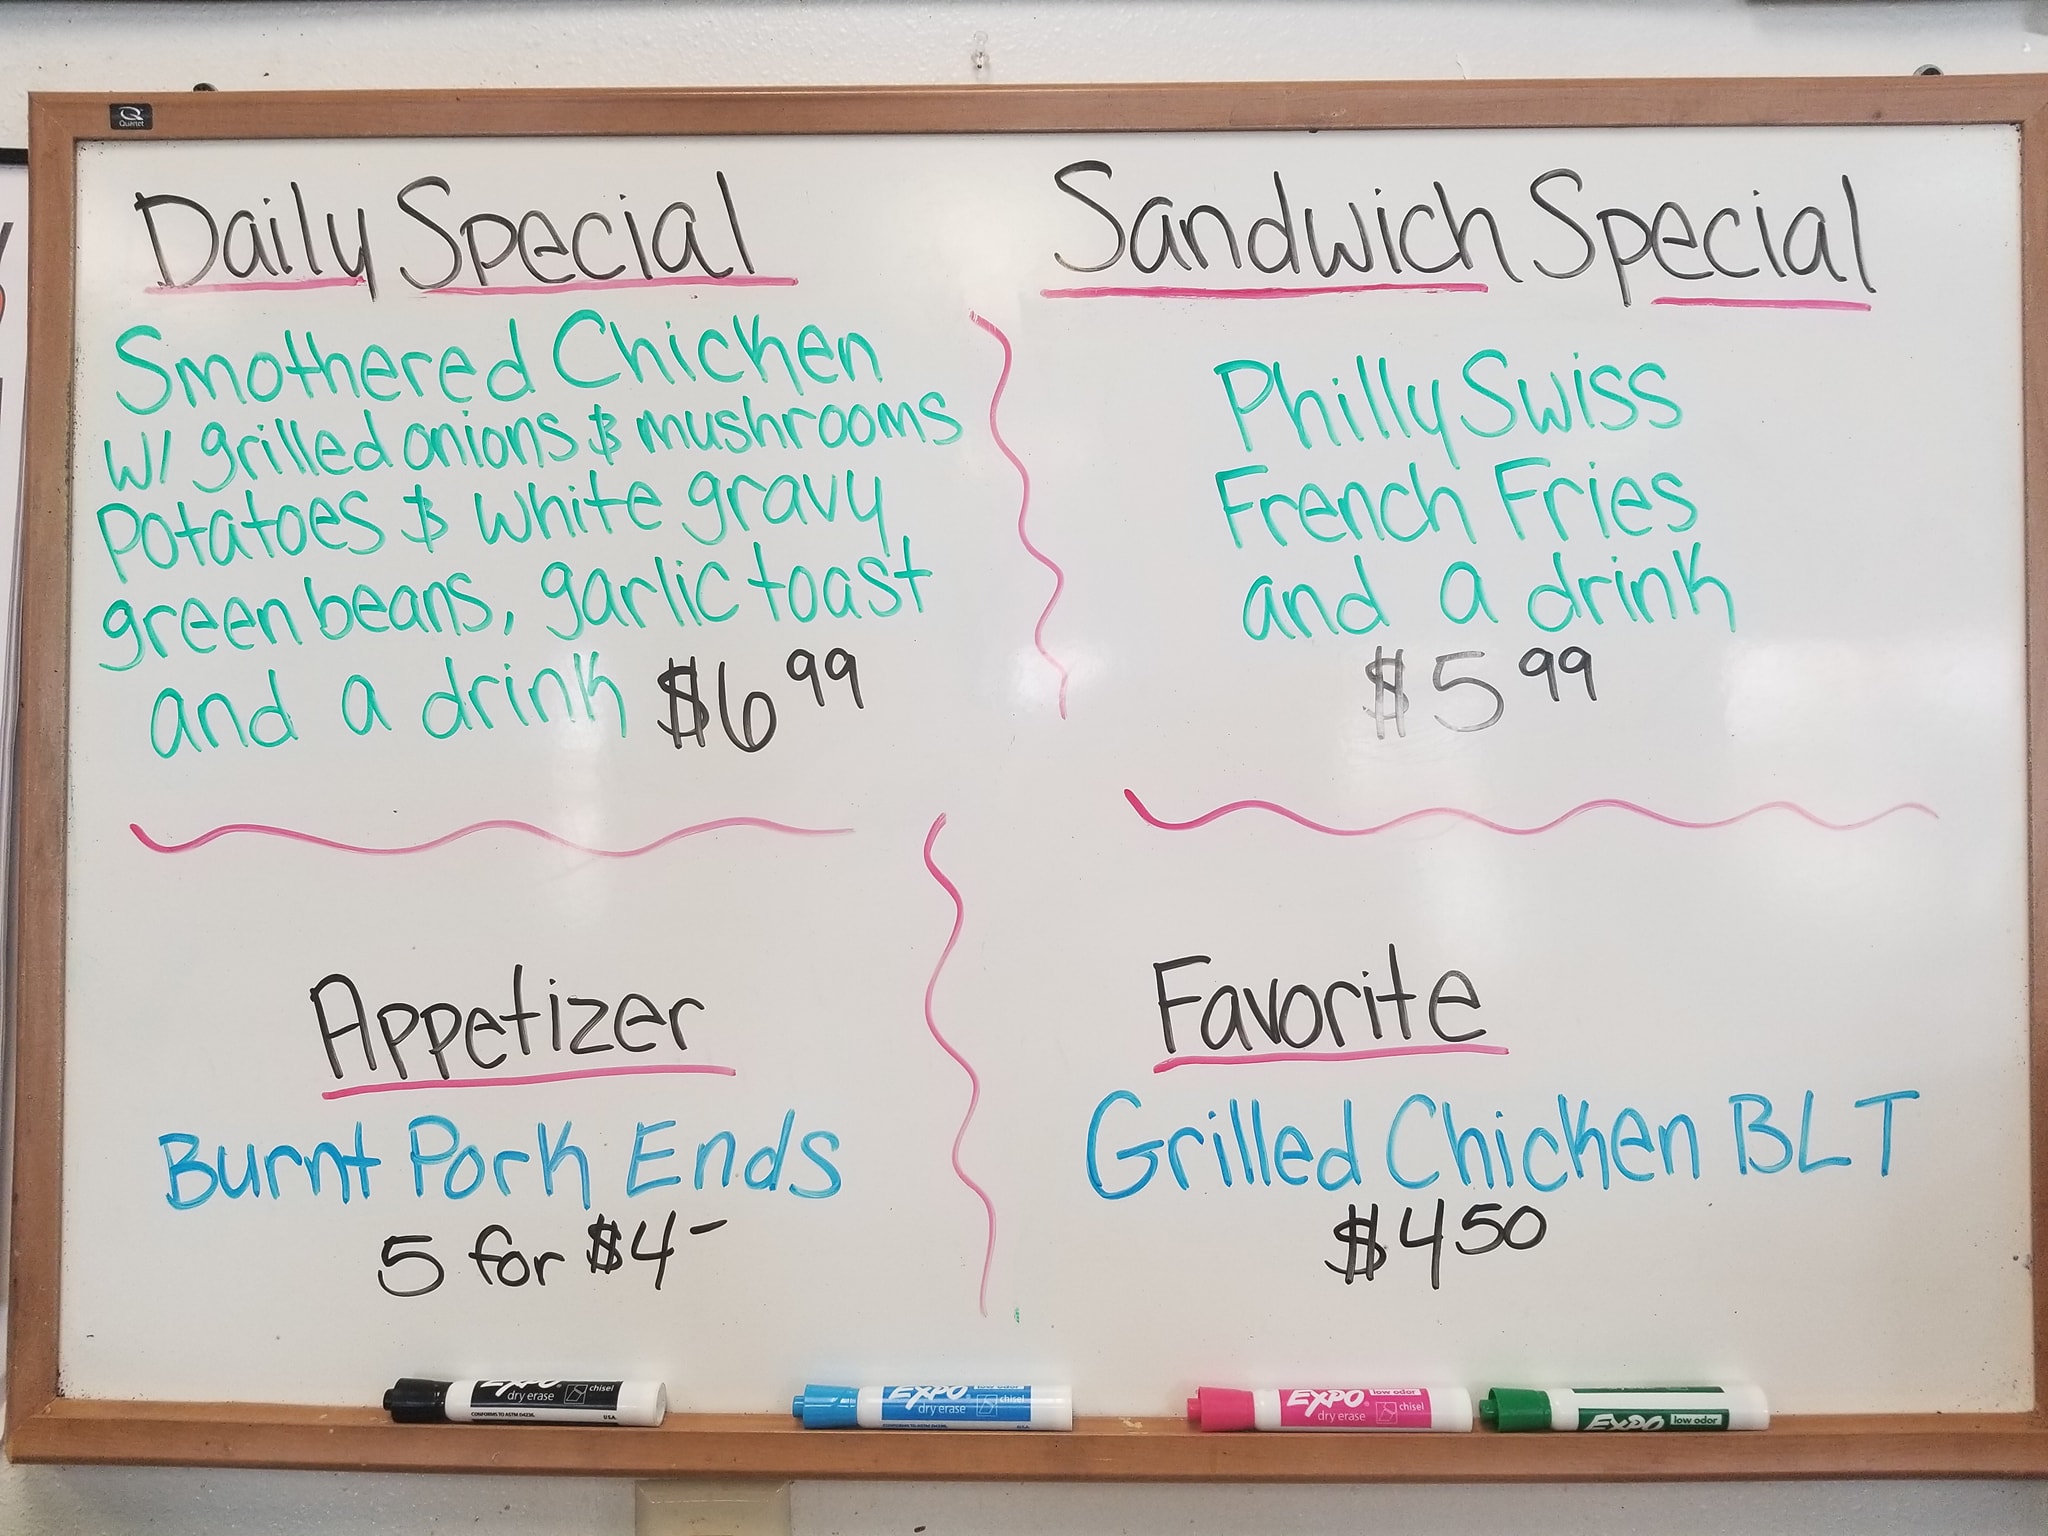 Quartet
Daily Special
Smothered Chicken
w/ grilled onions & mushrooms
potatoes & white gravy
green beans, garlic toast
and a drink $6 99
Sandwich Special
Philly Swiss
French Fries
and a drink
$5 99
Appetizer
Burnt Pork Ends
5 for $4-
Favorite
Grilled Chicken BLT
$4 50
EXPO
dry erase
chisel
CONFORMS TO ASTM D4236
U.S.A.
EXPO low odor
dry erase chisel
EXPO low odor
dry erase chisel
EXPO low odor